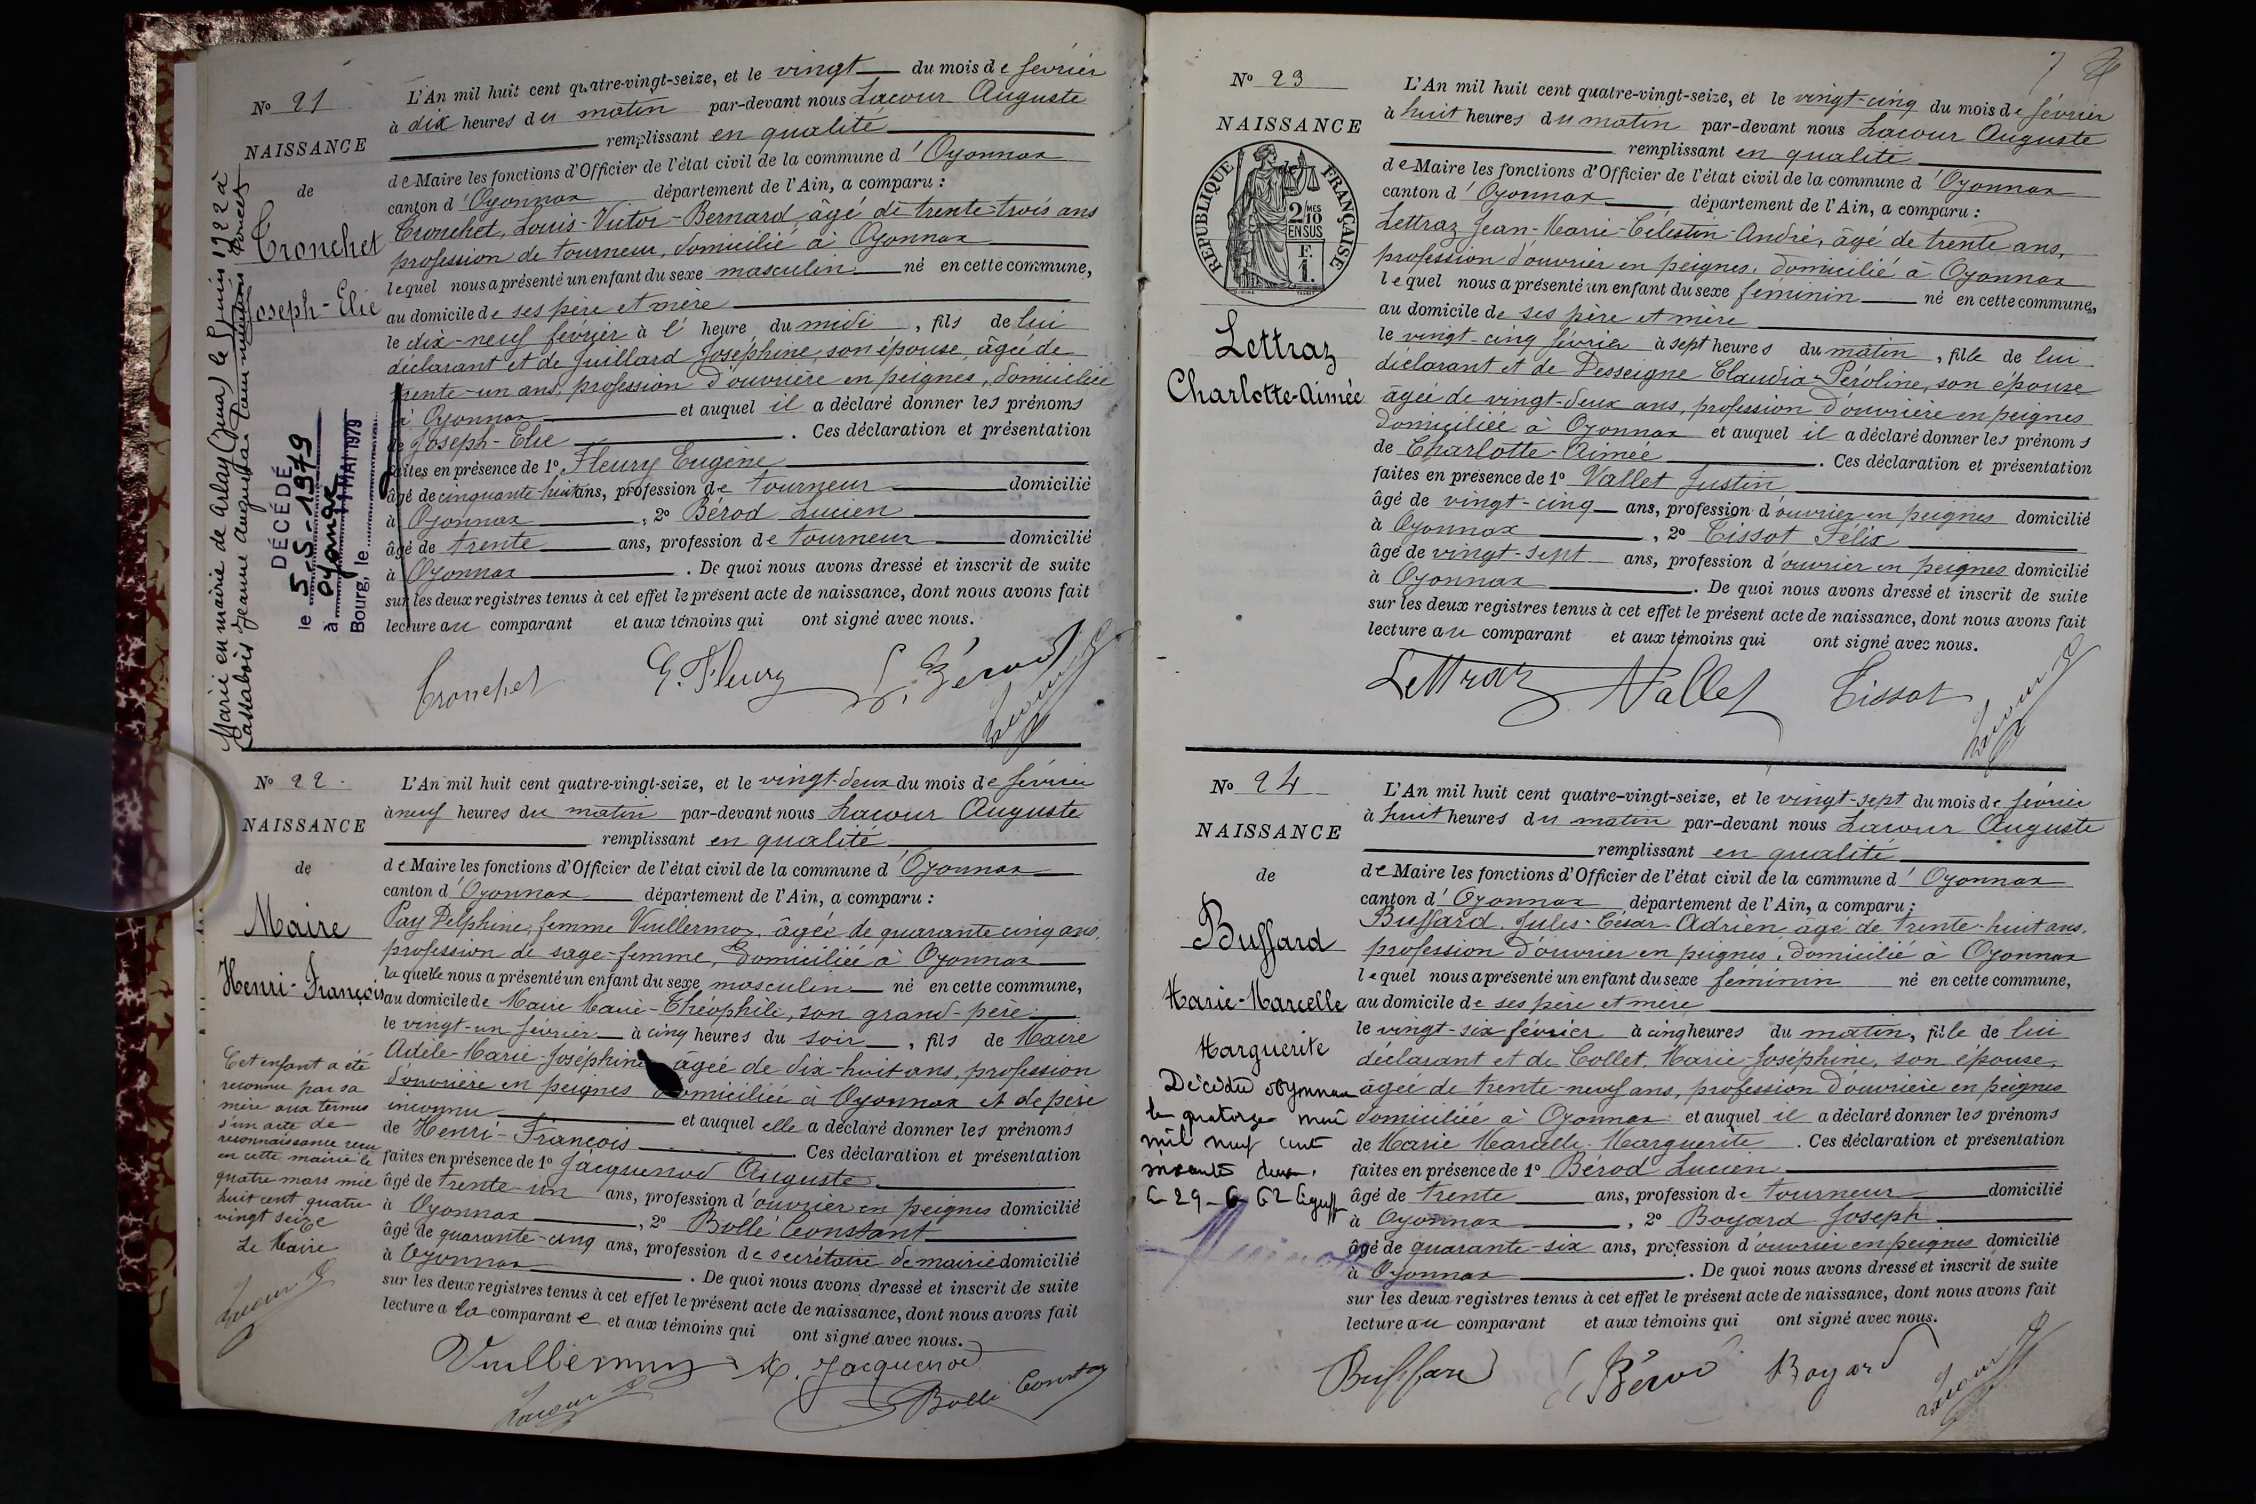 N° 21
NAISSANCE
de
Tronchet
Joseph-Elie
Marié en mairie de Arlay (Jura) le 8 juin 1922 à
Cassabois Jeanne Augusta
DÉCÉDÉ
le 5-5-1979
à Oyonnax
Bourg, le 11 MAI 1979
L'An mil huit cent quatre-vingt-seize, et le vingt du mois de février
à dix heures du matin par-devant nous Lacour Auguste
remplissant en qualité
de Maire les fonctions d'Officier de l'état civil de la commune d'Oyonnax
canton d'Oyonnax département de l'Ain, a comparu :
Tronchet, Louis-Victor-Bernard, âgé de trente-trois ans
profession de tourneur, domicilié à Oyonnax
lequel nous a présenté un enfant du sexe masculin né en cette commune,
au domicile de ses père et mère
le dix-neuf février à l' heure du midi, fils de lui
déclarant et de Juillard Joséphine, son épouse, âgée de
trente-un ans, profession d'ouvrière en peignes, domiciliée
à Oyonnax et auquel il a déclaré donner les prénoms
de Joseph-Elie. Ces déclaration et présentation
faites en présence de 1° Fleury Eugène
âgé de cinquante huit ans, profession de tourneur domicilié
à Oyonnax, 2° Bérod Lucien
âgé de trente ans, profession de tourneur domicilié
à Oyonnax. De quoi nous avons dressé et inscrit de suite
sur les deux registres tenus à cet effet le présent acte de naissance, dont nous avons fait
lecture au comparant et aux témoins qui ont signé avec nous.
Tronchet E. Fleury L. Bérod Lacour
N° 22
NAISSANCE
de
Maire
Henri-François
Cet enfant a été
reconnu par sa
mère aux termes
d'un acte de
reconnaissance reçu
en cette mairie le
quatre mars mil
huit cent quatre
vingt seize
Le Maire
Lacour
L'An mil huit cent quatre-vingt-seize, et le vingt-deux du mois de février
à neuf heures du matin par-devant nous Lacour Auguste
remplissant en qualité
de Maire les fonctions d'Officier de l'état civil de la commune d'Oyonnax
canton d'Oyonnax département de l'Ain, a comparu :
Pay Delphine, femme Vuillermoz, âgée de quarante cinq ans,
profession de sage-femme, domiciliée à Oyonnax
la quelle nous a présenté un enfant du sexe masculin né en cette commune,
au domicile de Maire Marie-Théophile, son grand-père
le vingt-un février à cinq heures du soir, fils de Maire
Adèle-Marie-Joséphine âgée de dix-huit ans, profession
d'ouvrière en peignes domiciliée à Oyonnax et de père
inconnu et auquel elle a déclaré donner les prénoms
de Henri-François. Ces déclaration et présentation
faites en présence de 1° Jacquenod Auguste
âgé de trente-un ans, profession d'ouvrier en peignes domicilié
à Oyonnax, 2° Bollé Constant
âgé de quarante-cinq ans, profession de secrétaire de mairie domicilié
à Oyonnax. De quoi nous avons dressé et inscrit de suite
sur les deux registres tenus à cet effet le présent acte de naissance, dont nous avons fait
lecture a la comparante et aux témoins qui ont signé avec nous.
Vuillermoz A. Jacquenod
Lacour Bollé Constant
7
N° 23
NAISSANCE
RÉPUBLIQUE FRANÇAISE
2/10 MES
EN SUS
F.
1.
Lettraz
Charlotte-Aimée
L'An mil huit cent quatre-vingt-seize, et le vingt-cinq du mois de février
à huit heures du matin par-devant nous Lacour Auguste
remplissant en qualité
de Maire les fonctions d'Officier de l'état civil de la commune d'Oyonnax
canton d'Oyonnax département de l'Ain, a comparu :
Lettraz Jean-Marie-Célestin-André, âgé de trente ans,
profession d'ouvrier en peignes, domicilié à Oyonnax
lequel nous a présenté un enfant du sexe féminin né en cette commune,
au domicile de ses père et mère
le vingt-cinq février à sept heures du matin, fille de lui
déclarant et de Desseigne Claudia-Péroline, son épouse
âgée de vingt-deux ans, profession d'ouvrière en peignes
domiciliée à Oyonnax et auquel il a déclaré donner les prénoms
de Charlotte-Aimée. Ces déclaration et présentation
faites en présence de 1° Vallet Justin
âgé de vingt-cinq ans, profession d'ouvrier en peignes domicilié
à Oyonnax, 2° Tissot Félix
âgé de vingt-sept ans, profession d'ouvrier en peignes domicilié
à Oyonnax. De quoi nous avons dressé et inscrit de suite
sur les deux registres tenus à cet effet le présent acte de naissance, dont nous avons fait
lecture au comparant et aux témoins qui ont signé avec nous.
Lettraz Vallet Tissot Lacour
N° 24
NAISSANCE
de
Buffard
Marie-Marcelle
Marguerite
Décédée Oyonnax
le quatorze mai
mil neuf cent
soixante deux.
L'An mil huit cent quatre-vingt-seize, et le vingt-sept du mois de février
à huit heures du matin par-devant nous Lacour Auguste
remplissant en qualité
de Maire les fonctions d'Officier de l'état civil de la commune d'Oyonnax
canton d'Oyonnax département de l'Ain, a comparu :
Buffard, Jules-César-Adrien âgé de trente-huit ans,
profession d'ouvrier en peignes, domicilié à Oyonnax
lequel nous a présenté un enfant du sexe féminin né en cette commune,
au domicile de ses père et mère
le vingt-six février à cinq heures du matin, fille de lui
déclarant et de Collet, Marie-Joséphine, son épouse,
âgée de trente-neuf ans, profession d'ouvrière en peignes
domiciliée à Oyonnax et auquel il a déclaré donner les prénoms
de Marie Marcelle-Marguerite. Ces déclaration et présentation
faites en présence de 1° Bérod Lucien
âgé de trente ans, profession de tourneur domicilié
à Oyonnax, 2° Boyard Joseph
âgé de quarante-six ans, profession d'ouvrier en peignes domicilié
à Oyonnax. De quoi nous avons dressé et inscrit de suite
sur les deux registres tenus à cet effet le présent acte de naissance, dont nous avons fait
lecture au comparant et aux témoins qui ont signé avec nous.
Buffard L. Bérod Boyard Lacour